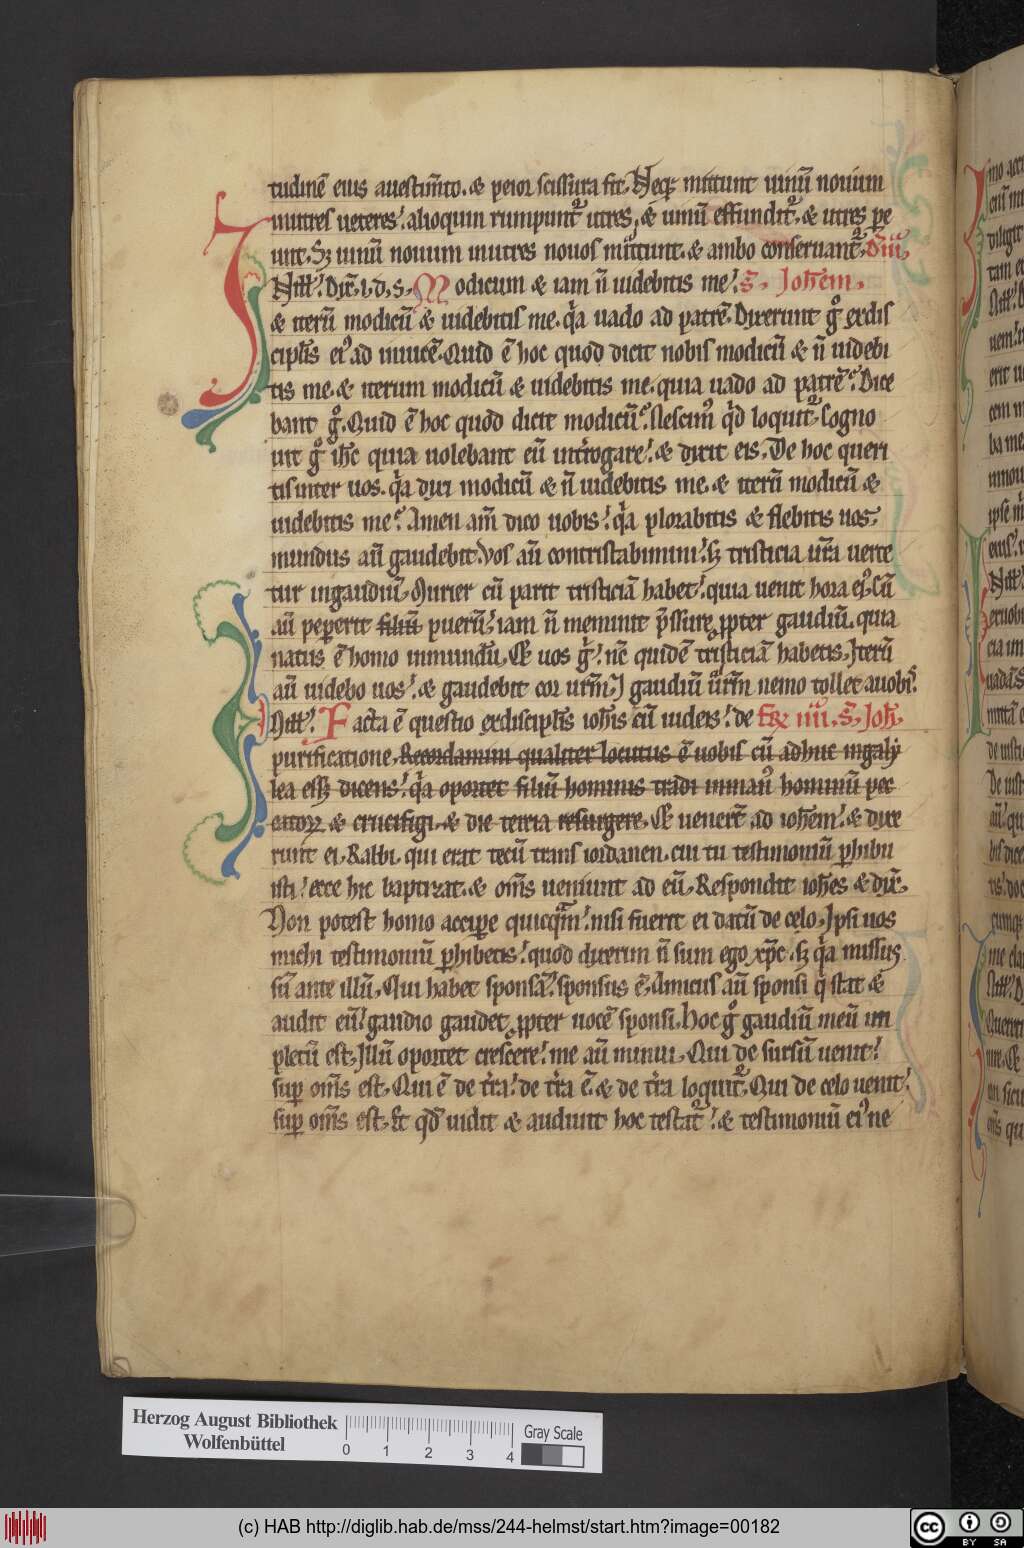 tudinē eius auestim̄to. & peior scissura fit. Neq; mittunt uinū nouum
inutres ueteres. alioquin rumpunt᷑ utres. & uinū effundit᷑. & utres pe
unt. Sꝫ uinū nouum inutres nouos mittunt. & ambo conseruant᷑.
In ill'. Dix̄. i. d. s. Modicum & iam n̄ uidebitis me. s. Joh̄em.
& iterū modicū & uidebitis me. q̇a uado ad patrē. Dixerunt gͦ exdis
cipl'is eiꝰ ad inuicē. Quid ē hoc quod dicit nobis modicū & n̄ uidebi
tis me. & iterum modicū & uidebitis me. quia uado ad patrē. Dice
bant gͦ. Quid ē hoc quod dicit modicū. Nescimꝰ q̇d loquit᷑. Cogno
uit gͦ ih̄c quia uolebant eū int̄rogare. & dixit eis. De hoc queri
tis inter uos. q̇a dixi modicū & n̄ uidebitis me. & iterū modicū &
uidebitis me. Amen am̄ dico uobis. q̇a plorabitis & flebitis uos.
mundus aū gaudebit. Vos aū contristabimini. sꝫ tristicia ūra uerte
tur ingaudiū. Mulier cū parit tristiciā habet. quia uenit hora eiꝰ. Cū
aū pepererit filiū puerū. iam n̄ meminit p̄ssure ꝓpter gaudiū. quia
natus ē homo inmundū. Et uos gͦ. nc̄ quidē tristiciā habetis. Iterū
aū uidebo uos. & gaudebit cor urm̄. & gaudiū urm̄ nemo tollet auobis.
In ill'. Facta ē questio exdiscipl'is ioh̄is cū iudeis. de Fer iiii. s. Joh̄.
purificatione. Recordamini qualiter locutus ē uobis cū adhuc ingaly
lea essꝫ dicens. q̇a oportet filiū hominis tradi inmanꝰ hominū pec
catorꝝ & crucifigi. & die tercia resurgere. Et uenert̄ ad ioh̄em. & dixe
runt ei. Rabbi. qui erat tecū trans iordanen. cui tu testimoniū ꝑhibu
isti. ecce hic baptizat. & om̄s ueniunt ad eū. Respondit ioh̄es & dix̄.
Non potest homo accipe quicq̄m. nisi fuerit ei datū de celo. Ipsi uos
michi testimoniū ꝑhibetis. quod dixerim n̄ sum ego xp̄c. sꝫ q̇a missus
sū ante illū. Qui habet sponsā. sponsus ē. Amicus aū sponsi q̇ stat &
audit eū. gaudio gaudet ꝓpter uocē sponsi. Hoc gͦ gaudiū meū im
pletū est. Illū oportet crescere. me aū minui. Qui de sursū uenit.
suꝑ om̄s est. Qui ē de t̄ra. de t̄ra ē. & de t̄ra loquit᷑. Qui de celo uenit.
suꝑ om̄s est. Et qd̄ uidit & audiuit hoc testat᷑. & testimoniū eiꝰ ne
Herzog August Bibliothek
Wolfenbüttel
0 1 2 3 4
Gray Scale
(c) HAB http://diglib.hab.de/mss/244-helmst/start.htm?image=00182
cc BY SA